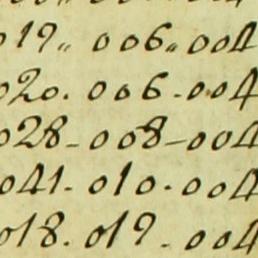 019„ 006„ 004
020. 006-004
028-008-004
041-010.004
018. 019-004